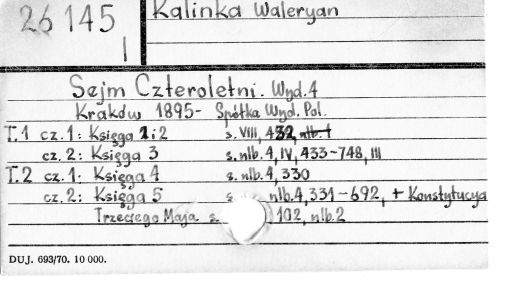 26 145
I
Kalinka Waleryan
Sejm Czteroletni. Wyd. 4
Kraków 1895- Spółka Wyd. Pol.
T.1 cz. 1: Księga 1 i 2 s. VIII, 432, nlb. 1
cz. 2: Księga 3 s. nlb. 4, IV, 433-748, III
T.2 cz. 1: Księga 4 s. nlb. 4, 330
cz. 2: Księga 5 s. nlb. 4, 331-692, + Konstytucya
Trzeciego Maja s. 102, nlb. 2
DUJ. 693/70. 10 000.